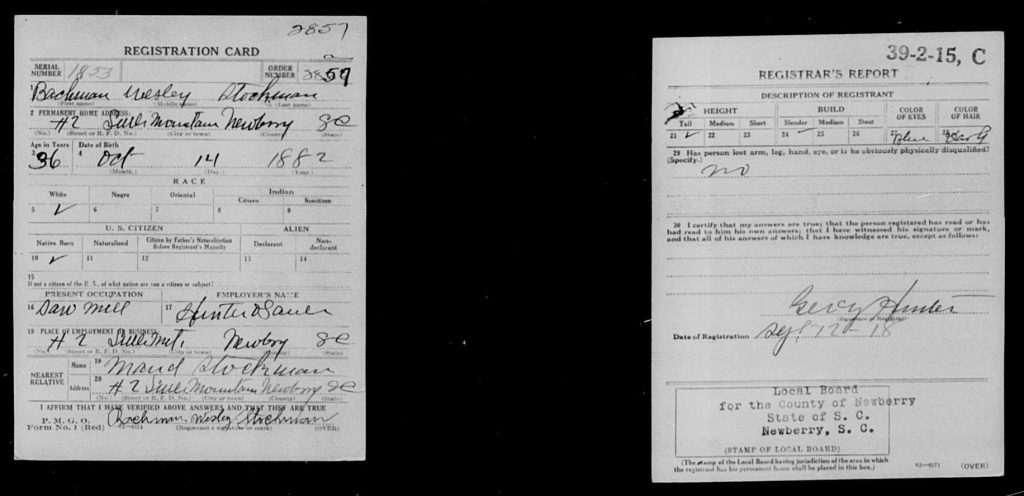 2857
REGISTRATION CARD
SERIAL NUMBER 1853 ORDER NUMBER 2857
1 Bachman Wesley Stockman
(First name) (Middle name) (Last name)
2 PERMANENT HOME ADDRESS:
#2 Little Mountain Newberry SC
(No.) (Street or R. F. D. No.) (City or town) (County) (State)
Age in Years Date of Birth
3 36 4 Oct 14 1882
(Month.) (Day.) (Year.)
RACE
White Negro Oriental Indian
Citizen Noncitizen
5 ✓ 6 7 8 9
U. S. CITIZEN ALIEN
Native Born Naturalized Citizen by Father's Naturalization Before Registrant's Majority Declarant Non-declarant
10 ✓ 11 12 13 14
15
If not a citizen of the U. S., of what nation are you a citizen or subject?
PRESENT OCCUPATION EMPLOYER'S NAME
16 Saw Mill 17 Hunter
18 PLACE OF EMPLOYMENT OR BUSINESS:
#2 Newberry SC
(No.) (Street or R. F. D. No.) (City or town) (County) (State)
NEAREST RELATIVE Name 19 Maud Stockman
Address 20 #2 Little Mountain Newberry SC
(No.) (Street or R. F. D. No.) (City or town) (County) (State)
I AFFIRM THAT I HAVE VERIFIED ABOVE ANSWERS AND THAT THEY ARE TRUE
P. M. G. O.
Form No. 1 (Red) Bachman Wesley Stockman
(Registrant's signature or mark) (OVER)
39-2-15, C
REGISTRAR'S REPORT
DESCRIPTION OF REGISTRANT
HEIGHT BUILD COLOR OF EYES COLOR OF HAIR
Tall Medium Short Slender Medium Stout
21 ✓ 22 23 24 25 26 27 Blue 28
29 Has person lost arm, leg, hand, eye, or is he obviously physically disqualified?
(Specify.) no
30 I certify that my answers are true; that the person registered has read or has
had read to him his own answers; that I have witnessed his signature or mark,
and that all of his answers of which I have knowledge are true, except as follows:
Hunter
(Signature of Registrar)
Date of Registration Sep 12 - 18
Local Board
for the County of Newberry
State of S. C.
Newberry, S. C.
(STAMP OF LOCAL BOARD)
(The stamp of the Local Board having jurisdiction of the area in which
the registrant has his permanent home shall be placed in this box.)
(OVER)